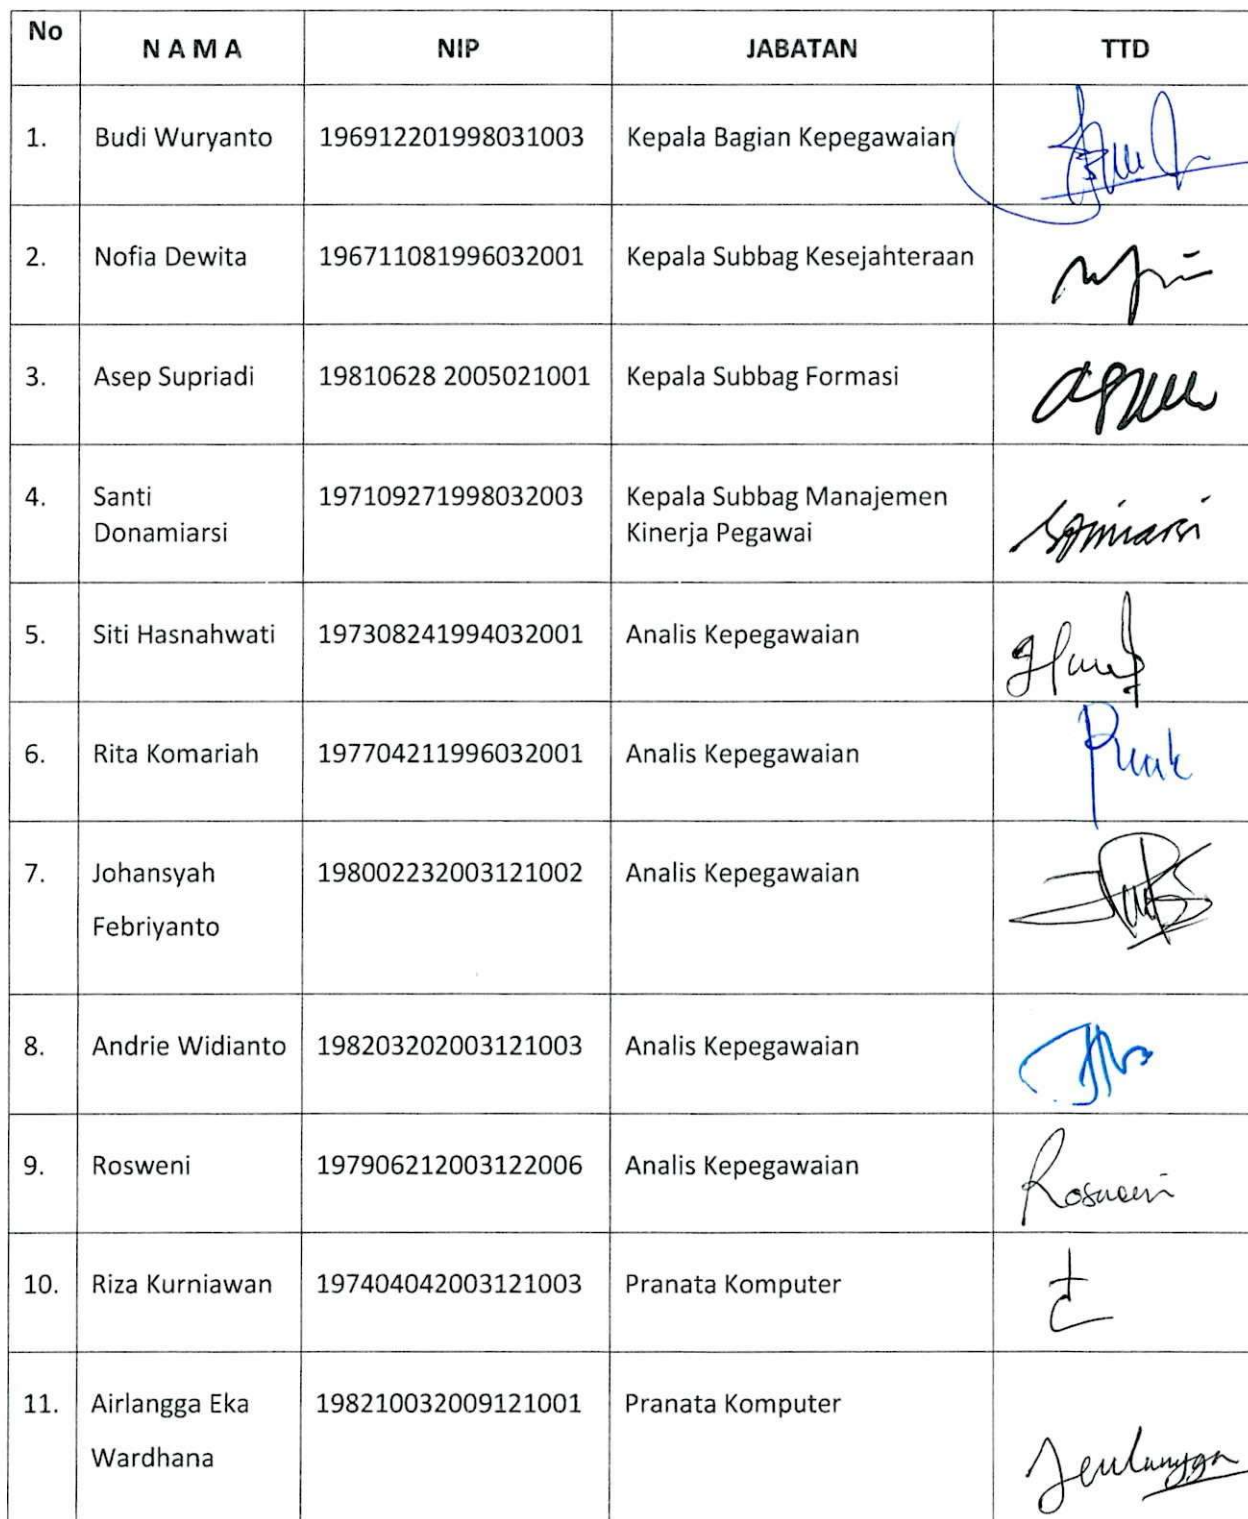 No NAMA NIP JABATAN TTD
1. Budi Wuryanto 196912201998031003 Kepala Bagian Kepegawaian
2. Nofia Dewita 196711081996032001 Kepala Subbag Kesejahteraan
3. Asep Supriadi 19810628 2005021001 Kepala Subbag Formasi
4. Santi 197109271998032003 Kepala Subbag Manajemen
Donamiarsi Kinerja Pegawai
5. Siti Hasnahwati 197308241994032001 Analis Kepegawaian
6. Rita Komariah 197704211996032001 Analis Kepegawaian
7. Johansyah 198002232003121002 Analis Kepegawaian
Febriyanto
8. Andrie Widianto 198203202003121003 Analis Kepegawaian
9. Rosweni 197906212003122006 Analis Kepegawaian Rosweni
10. Riza Kurniawan 197404042003121003 Pranata Komputer
11. Airlangga Eka 198210032009121001 Pranata Komputer
Wardhana